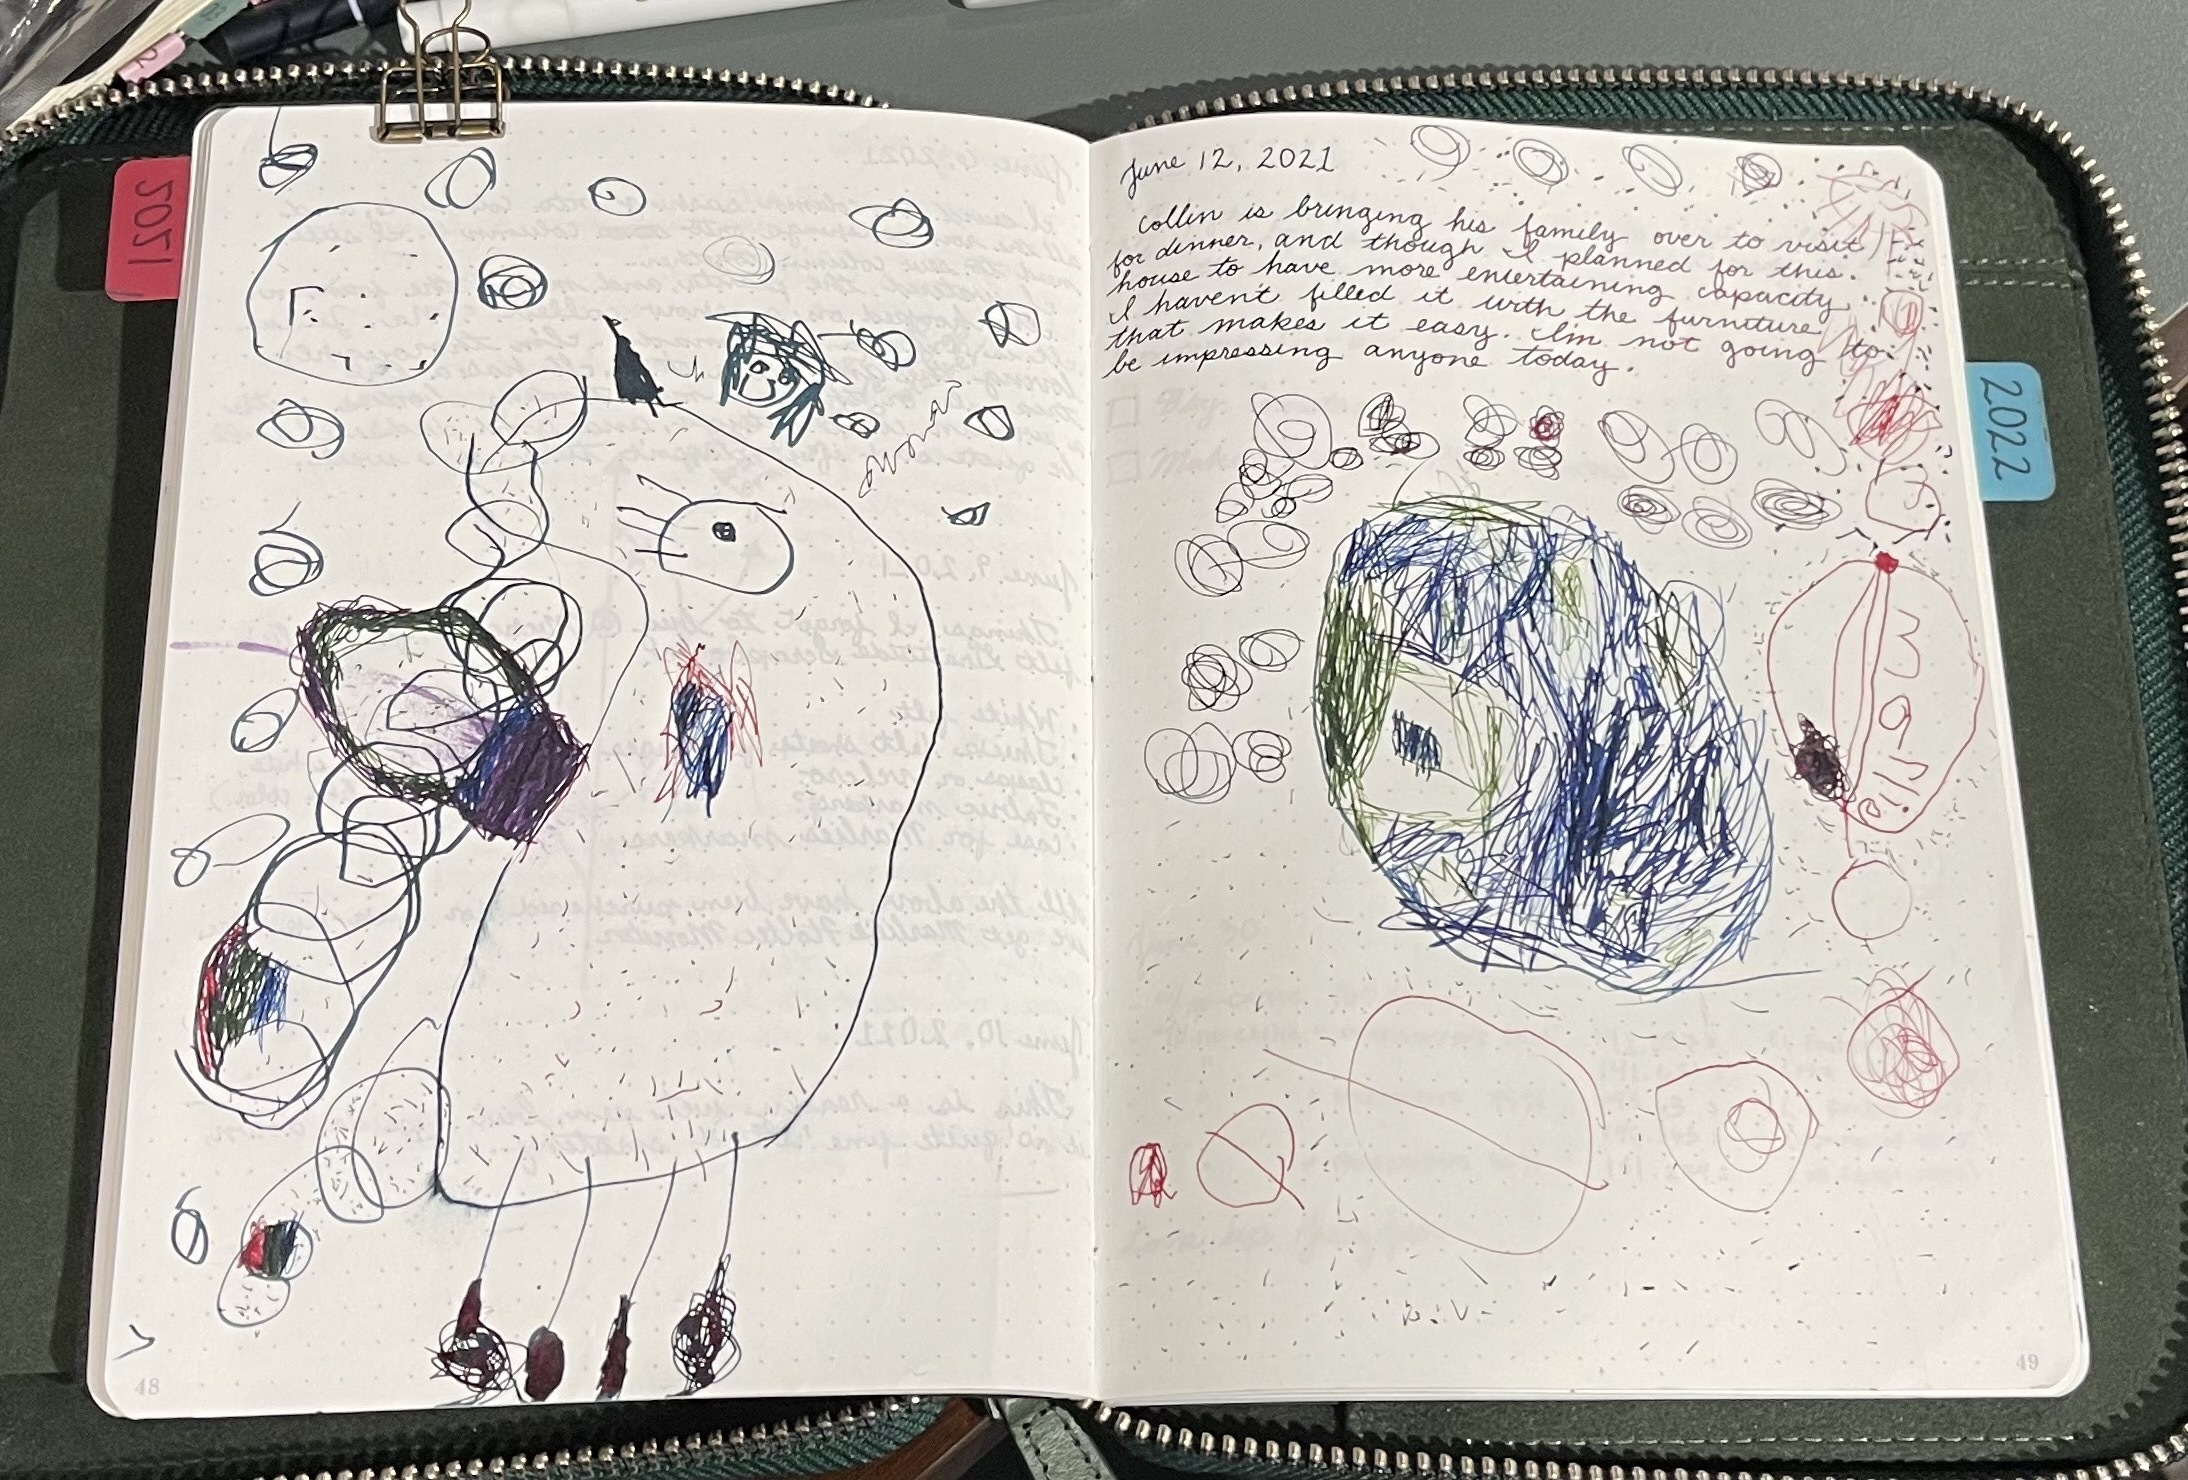 2021
48
June 12, 2021
Collin is bringing his family over to visit
for dinner, and though I planned for this
house to have more entertaining capacity
I haven't filled it with the furniture
that makes it easy. I'm not going to
be impressing anyone today.
2022
marlie
49